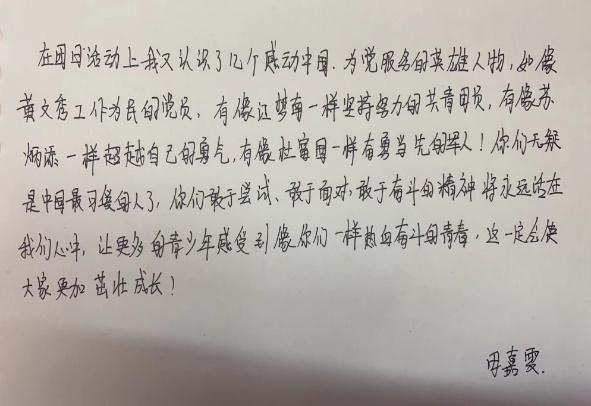 在团日活动上我又认识了12个感动中国.为党服务的英雄人物,如像
黄文秀工作为民的党员,有像江梦南一样坚持努力的共青团员,有像苏
炳添一样超越自己的勇气,有像杜富国一样奋勇当先的军人!你们无疑
是中国最可爱的人了,你们敢于尝试、敢于面对、敢于奋斗的精神将永远活在
我们心中,让更多的青少年感受到像你们一样热血奋斗的青春,这一定会使
大家更加茁壮成长!
田嘉雯.